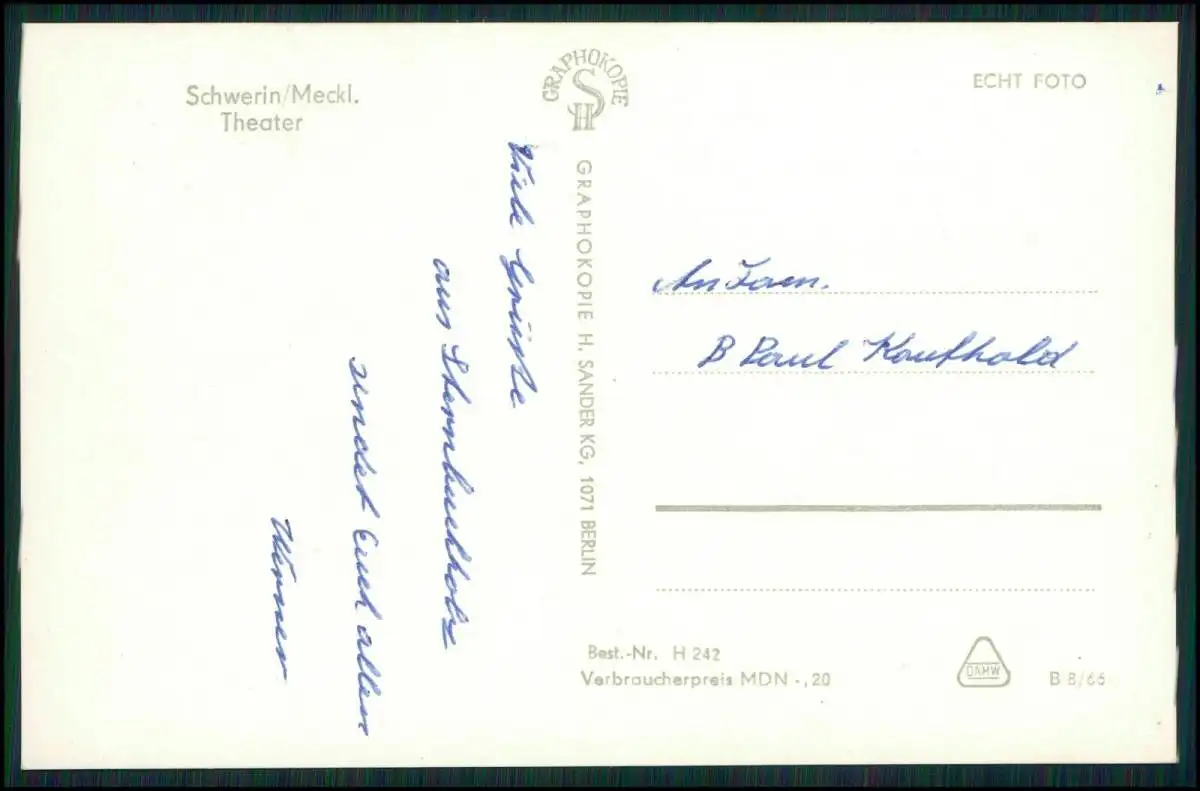 Schwerin/Meckl.
Theater
GRAPHOKOPIE
SH
ECHT FOTO
GRAPHOKOPIE H. SANDER KG, 1071 BERLIN
Viele Grüße
aus Sternbuchholz
sendet Euch allen
Werner
An Fam.
B Paul Kaufhold
Best.-Nr. H 242
Verbraucherpreis MDN -,20
DAMW
B 8/66